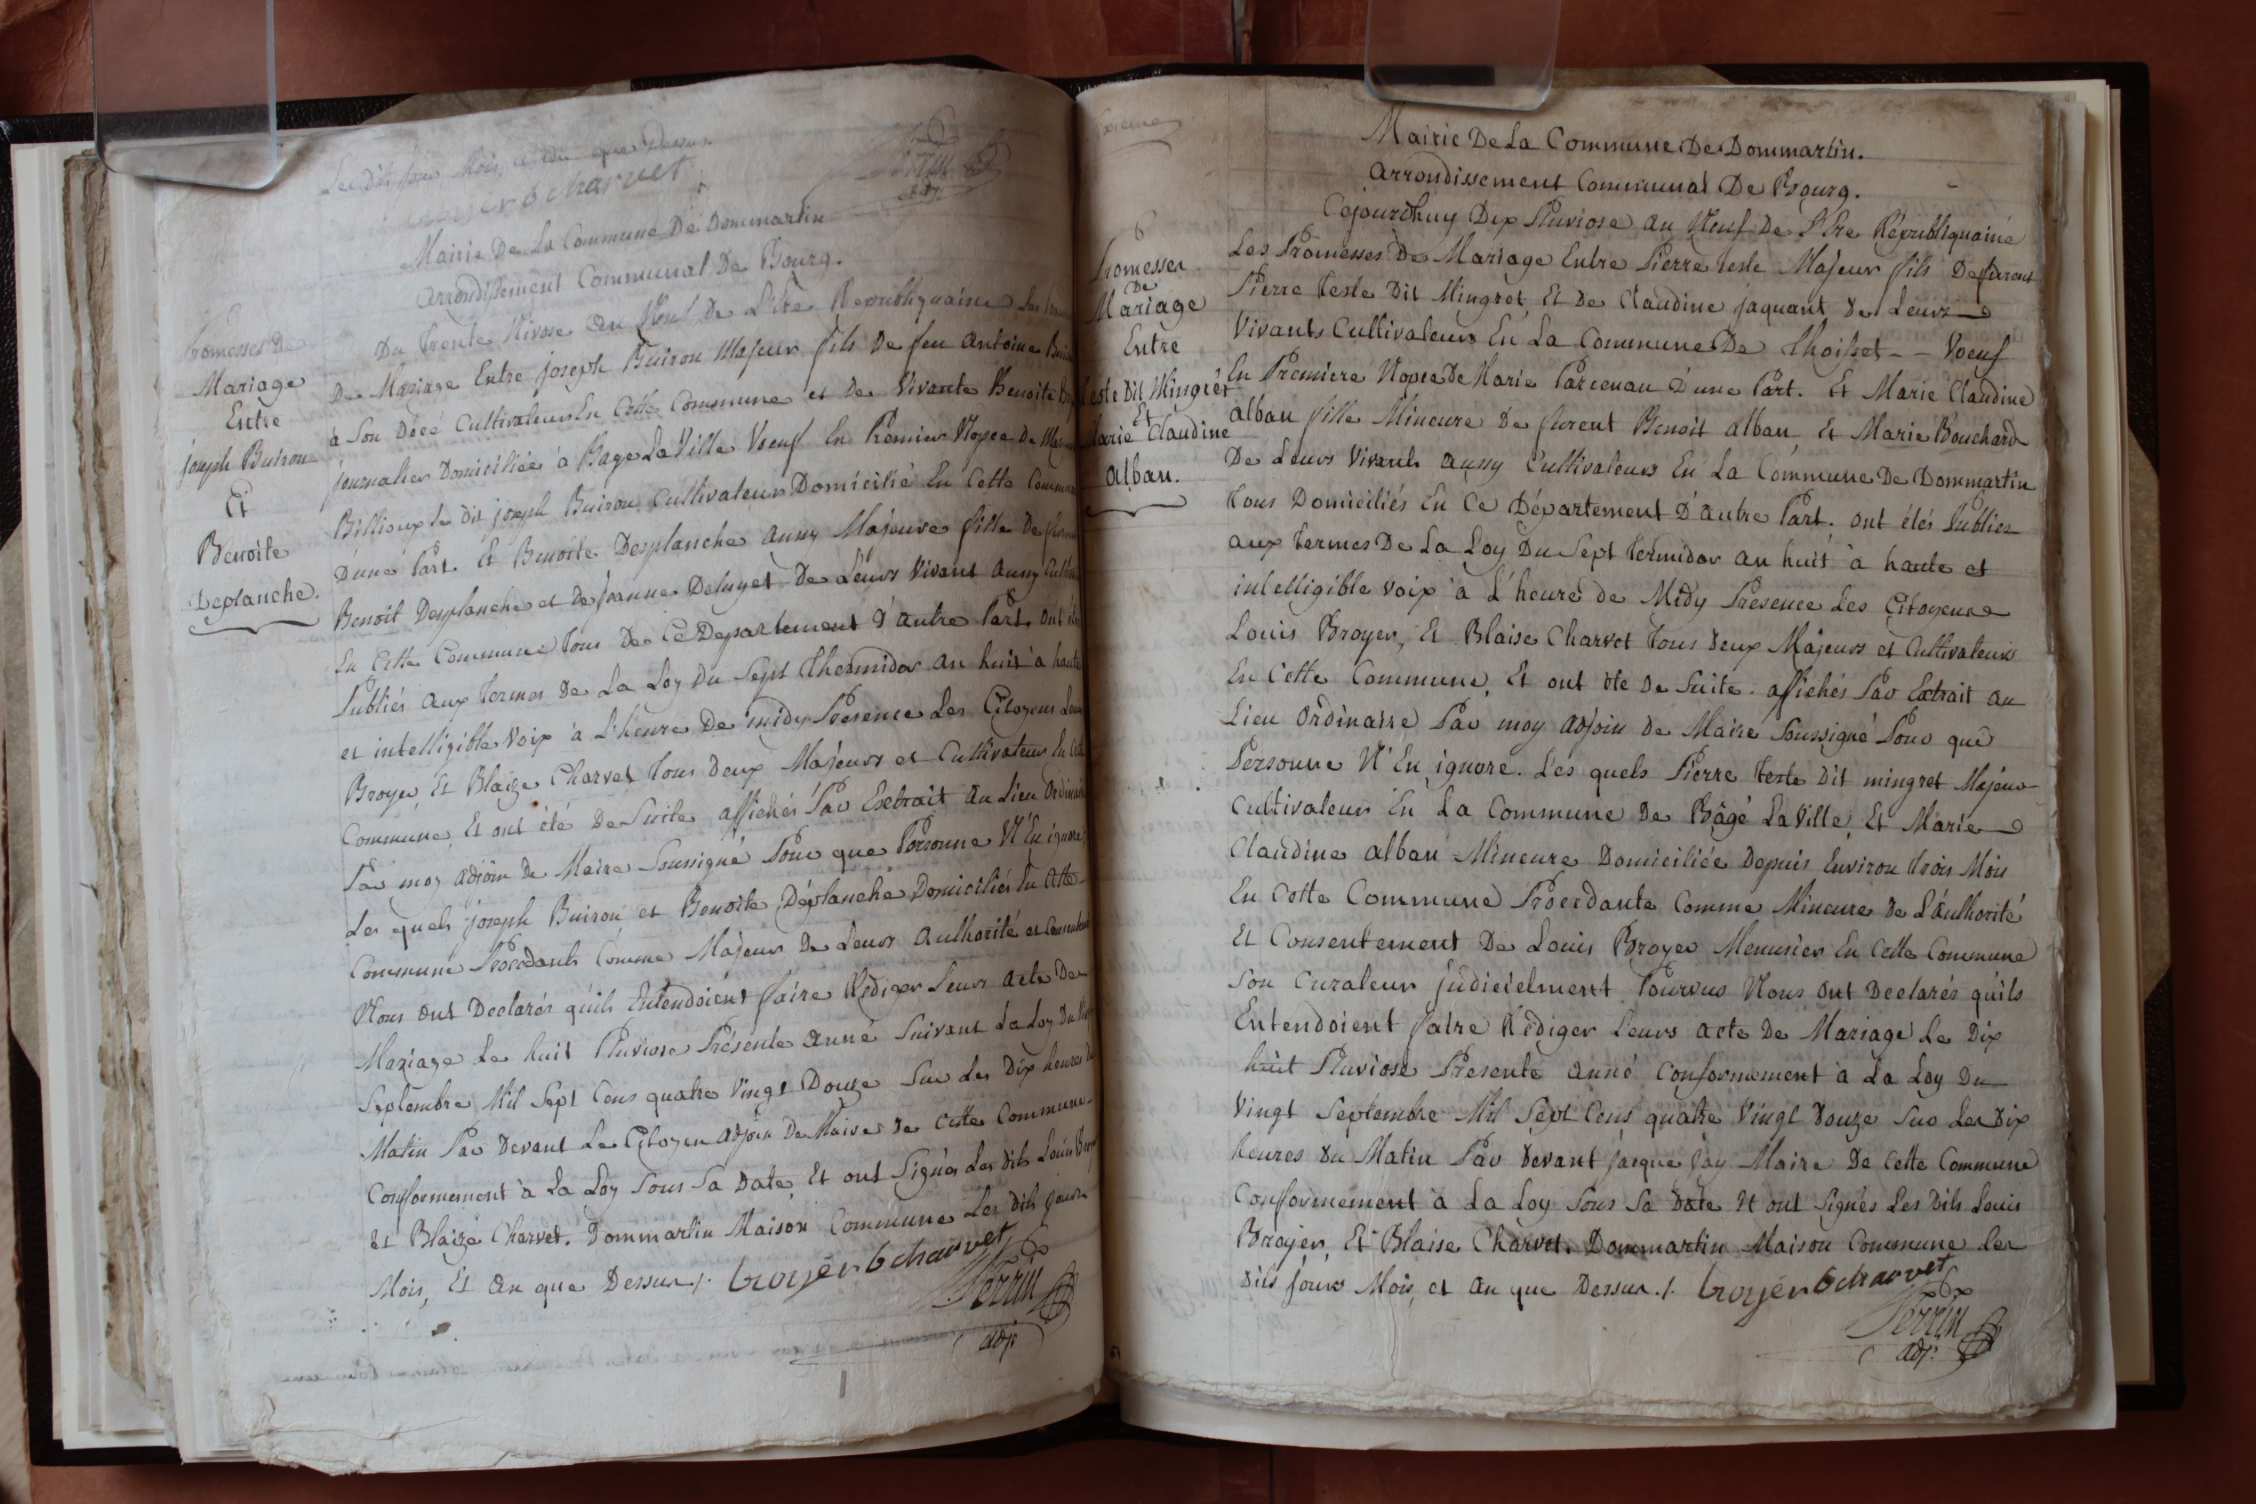 Les dits jour Mois, et an que Dessus.
broyer b charvet
Perrin
adj.
Mairie De La Commune De Dommartin
arrondissement Communal De Bourg.
Promesses De
Mariage
Entre
joseph Buiron
Et
Benoite
Deplanche.
Du trente Nivose an Neuf De L'Ere Republiquaine Les
De Mariage Entre joseph Buiron Majeur fils De feu antoine
à Son Décé Cultivateur En Cette Commune et de Vivante Benoite
journalier Domiciliée à Bage La Ville Voeuf En Premier Nopce De
Billioux le dit joseph Buiron Cultivateur Domicilié En Cette Commune
D'une Part. Et Benoite Desplanche aussy Majeure fille De
Benoit Desplanche et de jeanne Deluyet De Leurs Vivant aussy
En Cette Commune tous De Ce Departement d'autre Part, ont
Publiés aux termes De La Loy Du Sept thermidor an huit à haute
et intelligible Voix à L'heure De midy Presence Les Citoyens
Broyer, Et Blaize Charvet tous deux Majeurs et Cultivateurs En
Commune, Et ont été De Suite affichés Par Extrait au Lieu Ordinaire
Par moy adjoin de Maire Soussigné Pour que Personne N'En ignore
Les quels joseph Buiron et Benoite Déplanche Domiciliés En Cette
Commune Procedants Comme Majeurs De Leurs authorité et
Nous ont Declarés qu'ils Entendoient faire Rediger Leurs acte De
Mariage Le huit Pluviose Présente anné Suivant La Loy Du
Septembre Mil Sept Cens quatre Vingt Douze Sur Les Dix heures du
Matin Par Devant Le Citoyen adjoin De Maire de Cette Commune
Conformement à La Loy Sous Sa Date, Et ont Signés Les dits Louis
et Blaize Charvet. Dommartin Maison Commune Les dits jours
Mois, Et an que Dessus /. broyer b charvet
Perrin
adjt
Mairie De La Commune De Dommartin.
arrondissement Communal De Bourg.
6
Promesses
De
Mariage
Entre
teste Dit Mingret
Et
Marie Claudine
alban.
Cejourdhuy Dix Pluviose an Neuf De L'Ere Républiquaine
Les Promesses De Mariage Entre Pierre teste Majeur fils
Pierre teste Dit Mingret Et De Claudine jaquant de Leurs
Vivants Cultivateurs En La Commune De Voeuf
En Premiere Nopce De Marie Parcenau D'une Part. Et Marie Claudine
alban fille Mineure De furent Benoit alban Et Marie Bouchard
De Leurs Vivants aussy Cultivateurs En La Commune De Dommartin
tous Domiciliés En Ce Département D'autre Part. ont étés Publiez
aux termes De La Loy Du Sept termidor an huit à haute et
intelligible voix à L'heure de Midy Presence Les Citoyens
Louis Broyer, Et Blaise Charvet tous deux Majeurs et Cultivateurs
En Cette Commune, Et ont été De Suite affichés Par Extrait au
Lieu Ordinaire Par moy adjoin de Maire Soussigné Pour que
Personne N'En ignore. Les quels Pierre teste Dit mingret Majeur
Cultivateur En La Commune De Bâgé La Ville, Et Marie
Claudine alban Mineure Domiciliée Depuis Environ trois Mois
En Cette Commune Procedante Comme Mineure De L'authorité
Et Consentement De Louis Broyer Menusier En Cette Commune
Son Curateur judicielment Pourvus Nous ont Declarés qu'ils
Entendoient faire Rédiger Leurs acte De Mariage Le Dix
huit Pluviose Presente anné Conformement à La Loy Du
Vingt Septembre Mil Sept Cens quatre Vingt Douze Sur Les Dix
heures du Matin Par Devant jacque jay Maire De Cette Commune
Conformement à La Loy Sous Sa Date Et ont Signés Les Dits Louis
Broyer, Et Blaise Charvet. Dommartin Maison Commune Les
dits jours Mois, et an que Dessus./. broyer b charvet
Perrin
adj.